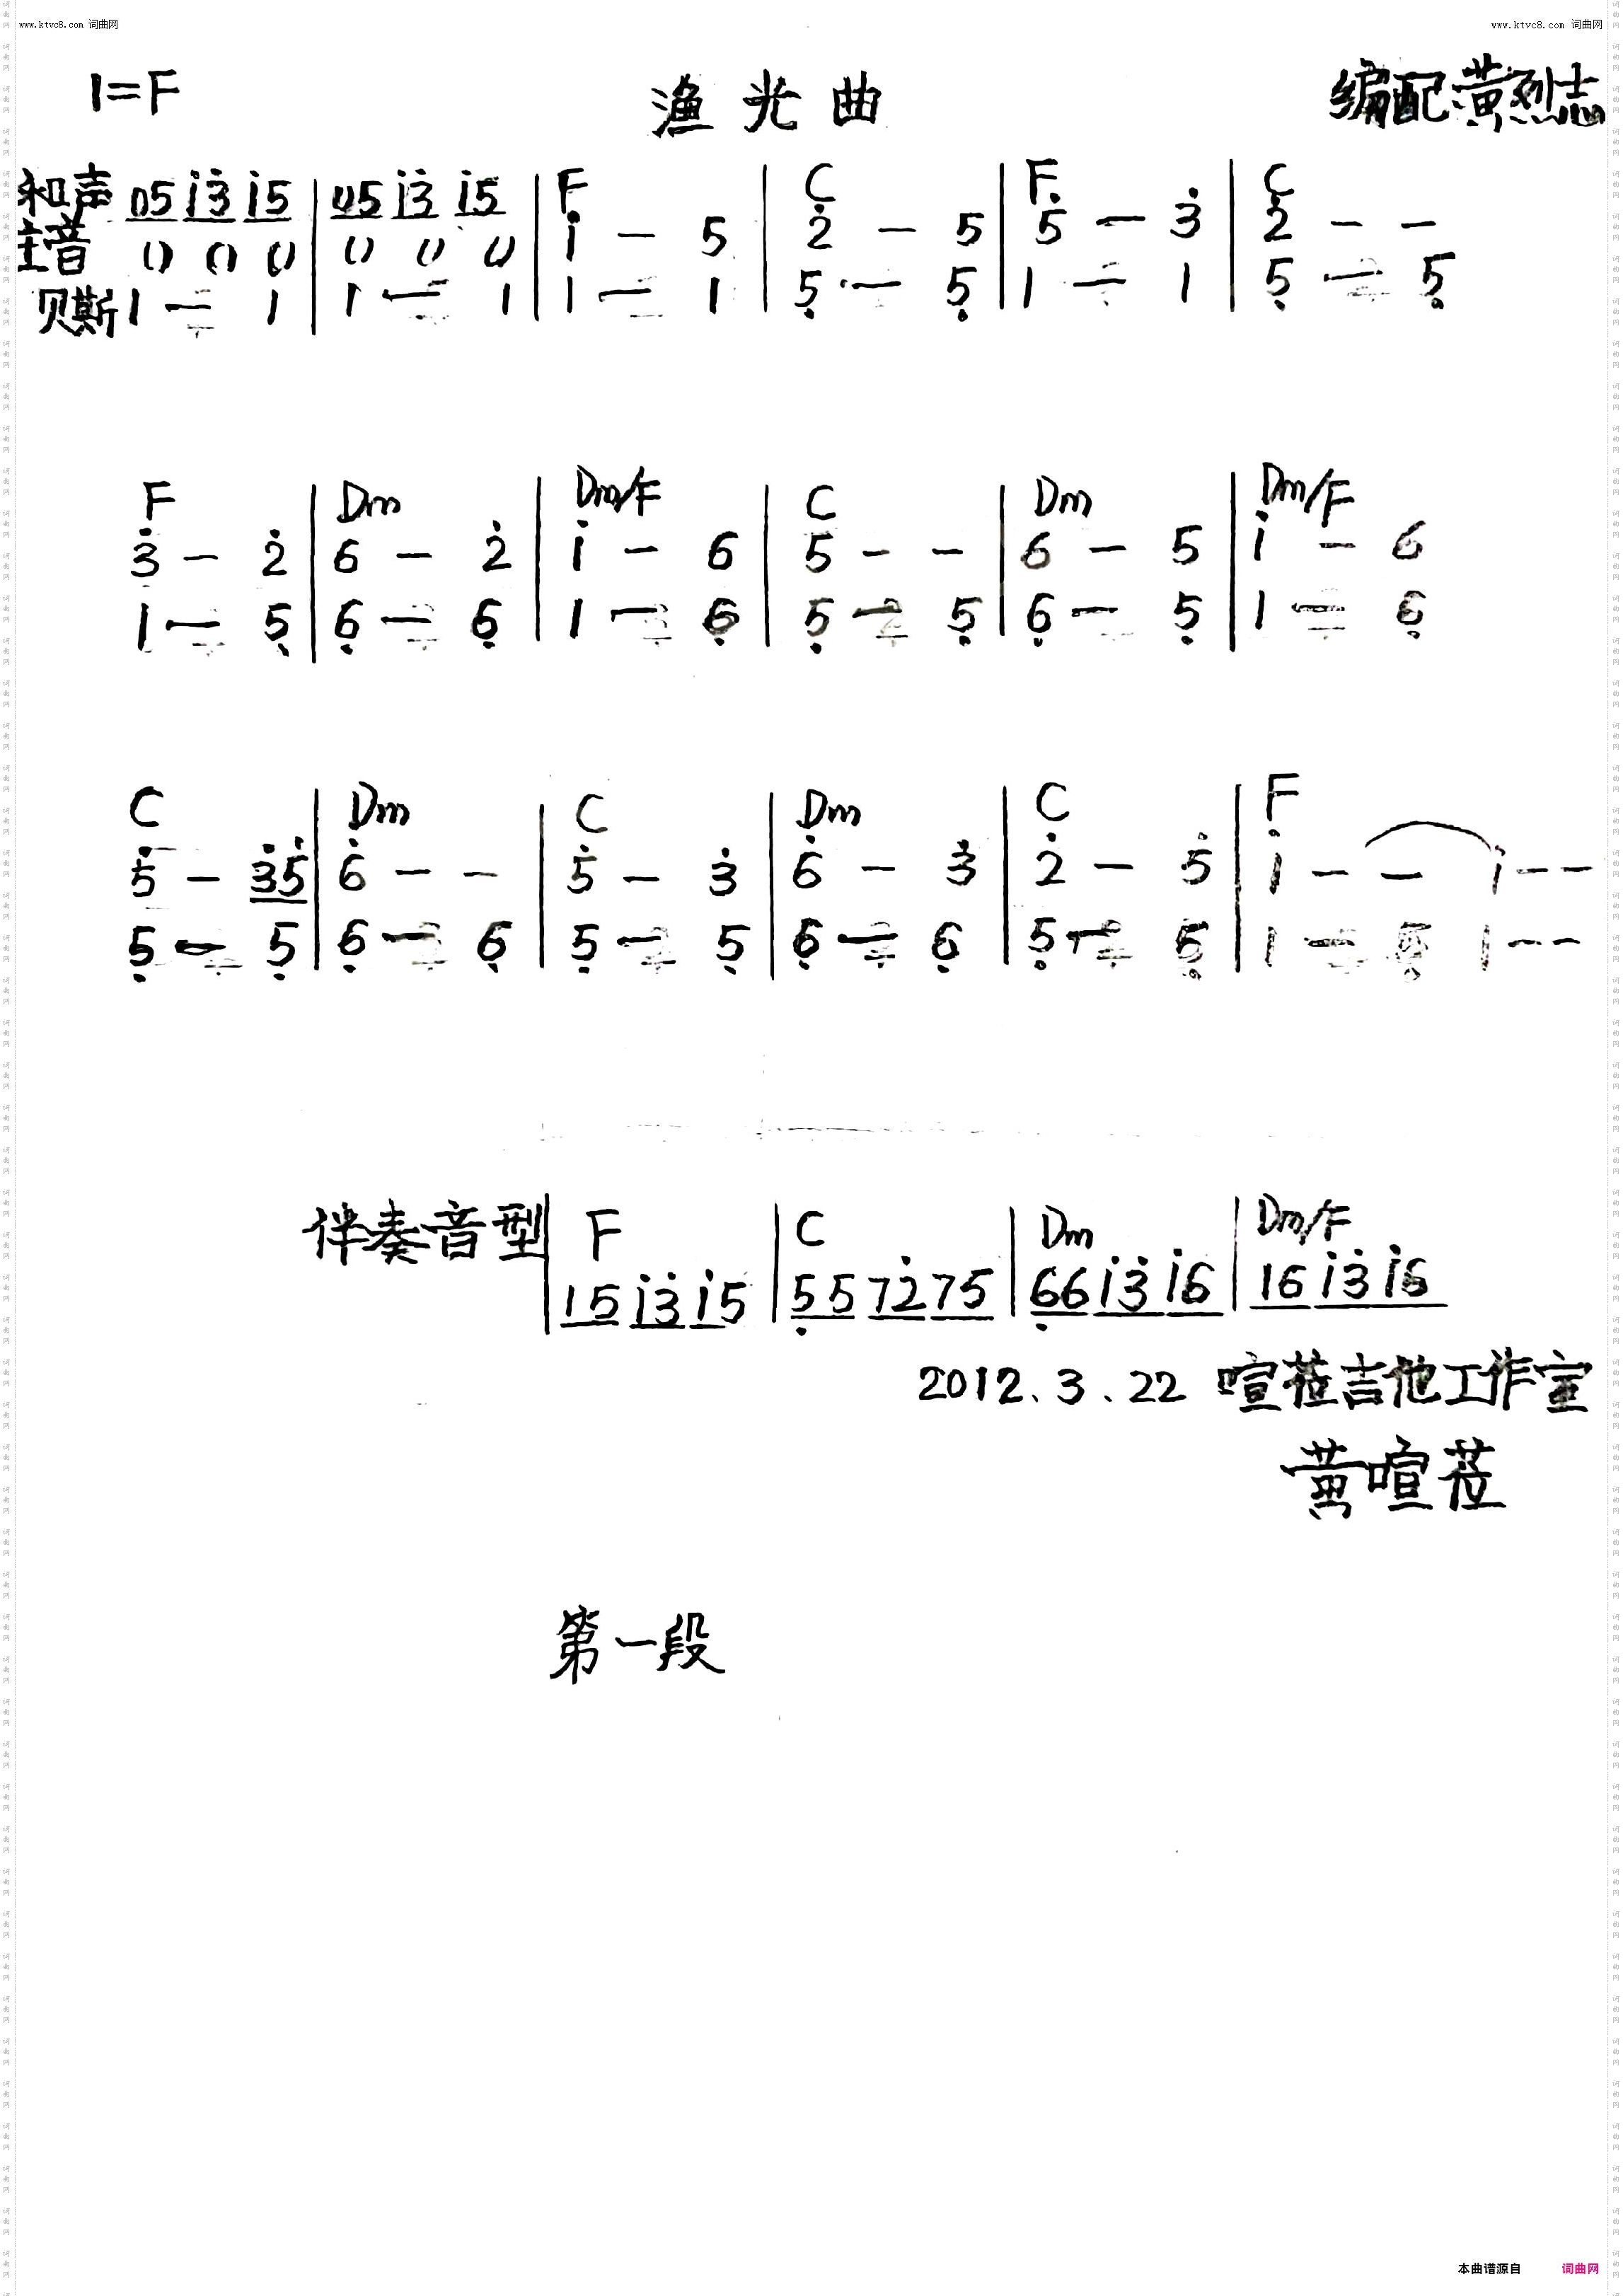 www.ktvc8.com 词曲网 www.ktvc8.com 词曲网
1=F 渔光曲 编配黄烈志
和声 05 i̇3̇ i̇5 | 05 i̇3̇ i̇5 | F | C | F | C
主音 0 0 0 | 0 0 0 | 1̇ — 5 | 2̇ — 5 | 5̇ — 3̇ | 2̇ — —
贝斯 1 — 1 | 1 — 1 | 1 — 1 | 5̣ — 5̣ | 1 — 1 | 5̣ — 5̣
F | Dm | Dm/F | C | Dm | Dm/F
3̇ — 2̇ | 6 — 2̇ | 1̇ — 6 | 5 — — | 6 — 5 | 1̇ — 6
1 — 5̣ | 6̣ — 6̣ | 1 — 6̣ | 5̣ — 5̣ | 6̣ — 5̣ | 1 — 6̣
C | Dm | C | Dm | C | F
5̇ — 3̇5̇ | 6̇ — — | 5̇ — 3̇ | 6̇ — 3̇ | 2̇ — 5̇ | 1̇ — — 1̇ — —
5̣ — 5̣ | 6̣ — 6̣ | 5̣ — 5̣ | 6̣ — 6̣ | 5̣ — 5̣ | 1 — 5̣ 1 — —
伴奏音型 | F | C | Dm | Dm/F
15 1̇3̇ 1̇5 | 5̣5 72̇ 75 | 6̣6 1̇3̇ 1̇6 | 16 1̇3̇ 1̇6
2012.3.22 喧莅吉他工作室
黄喧莅
第一段
本曲谱源自 词曲网